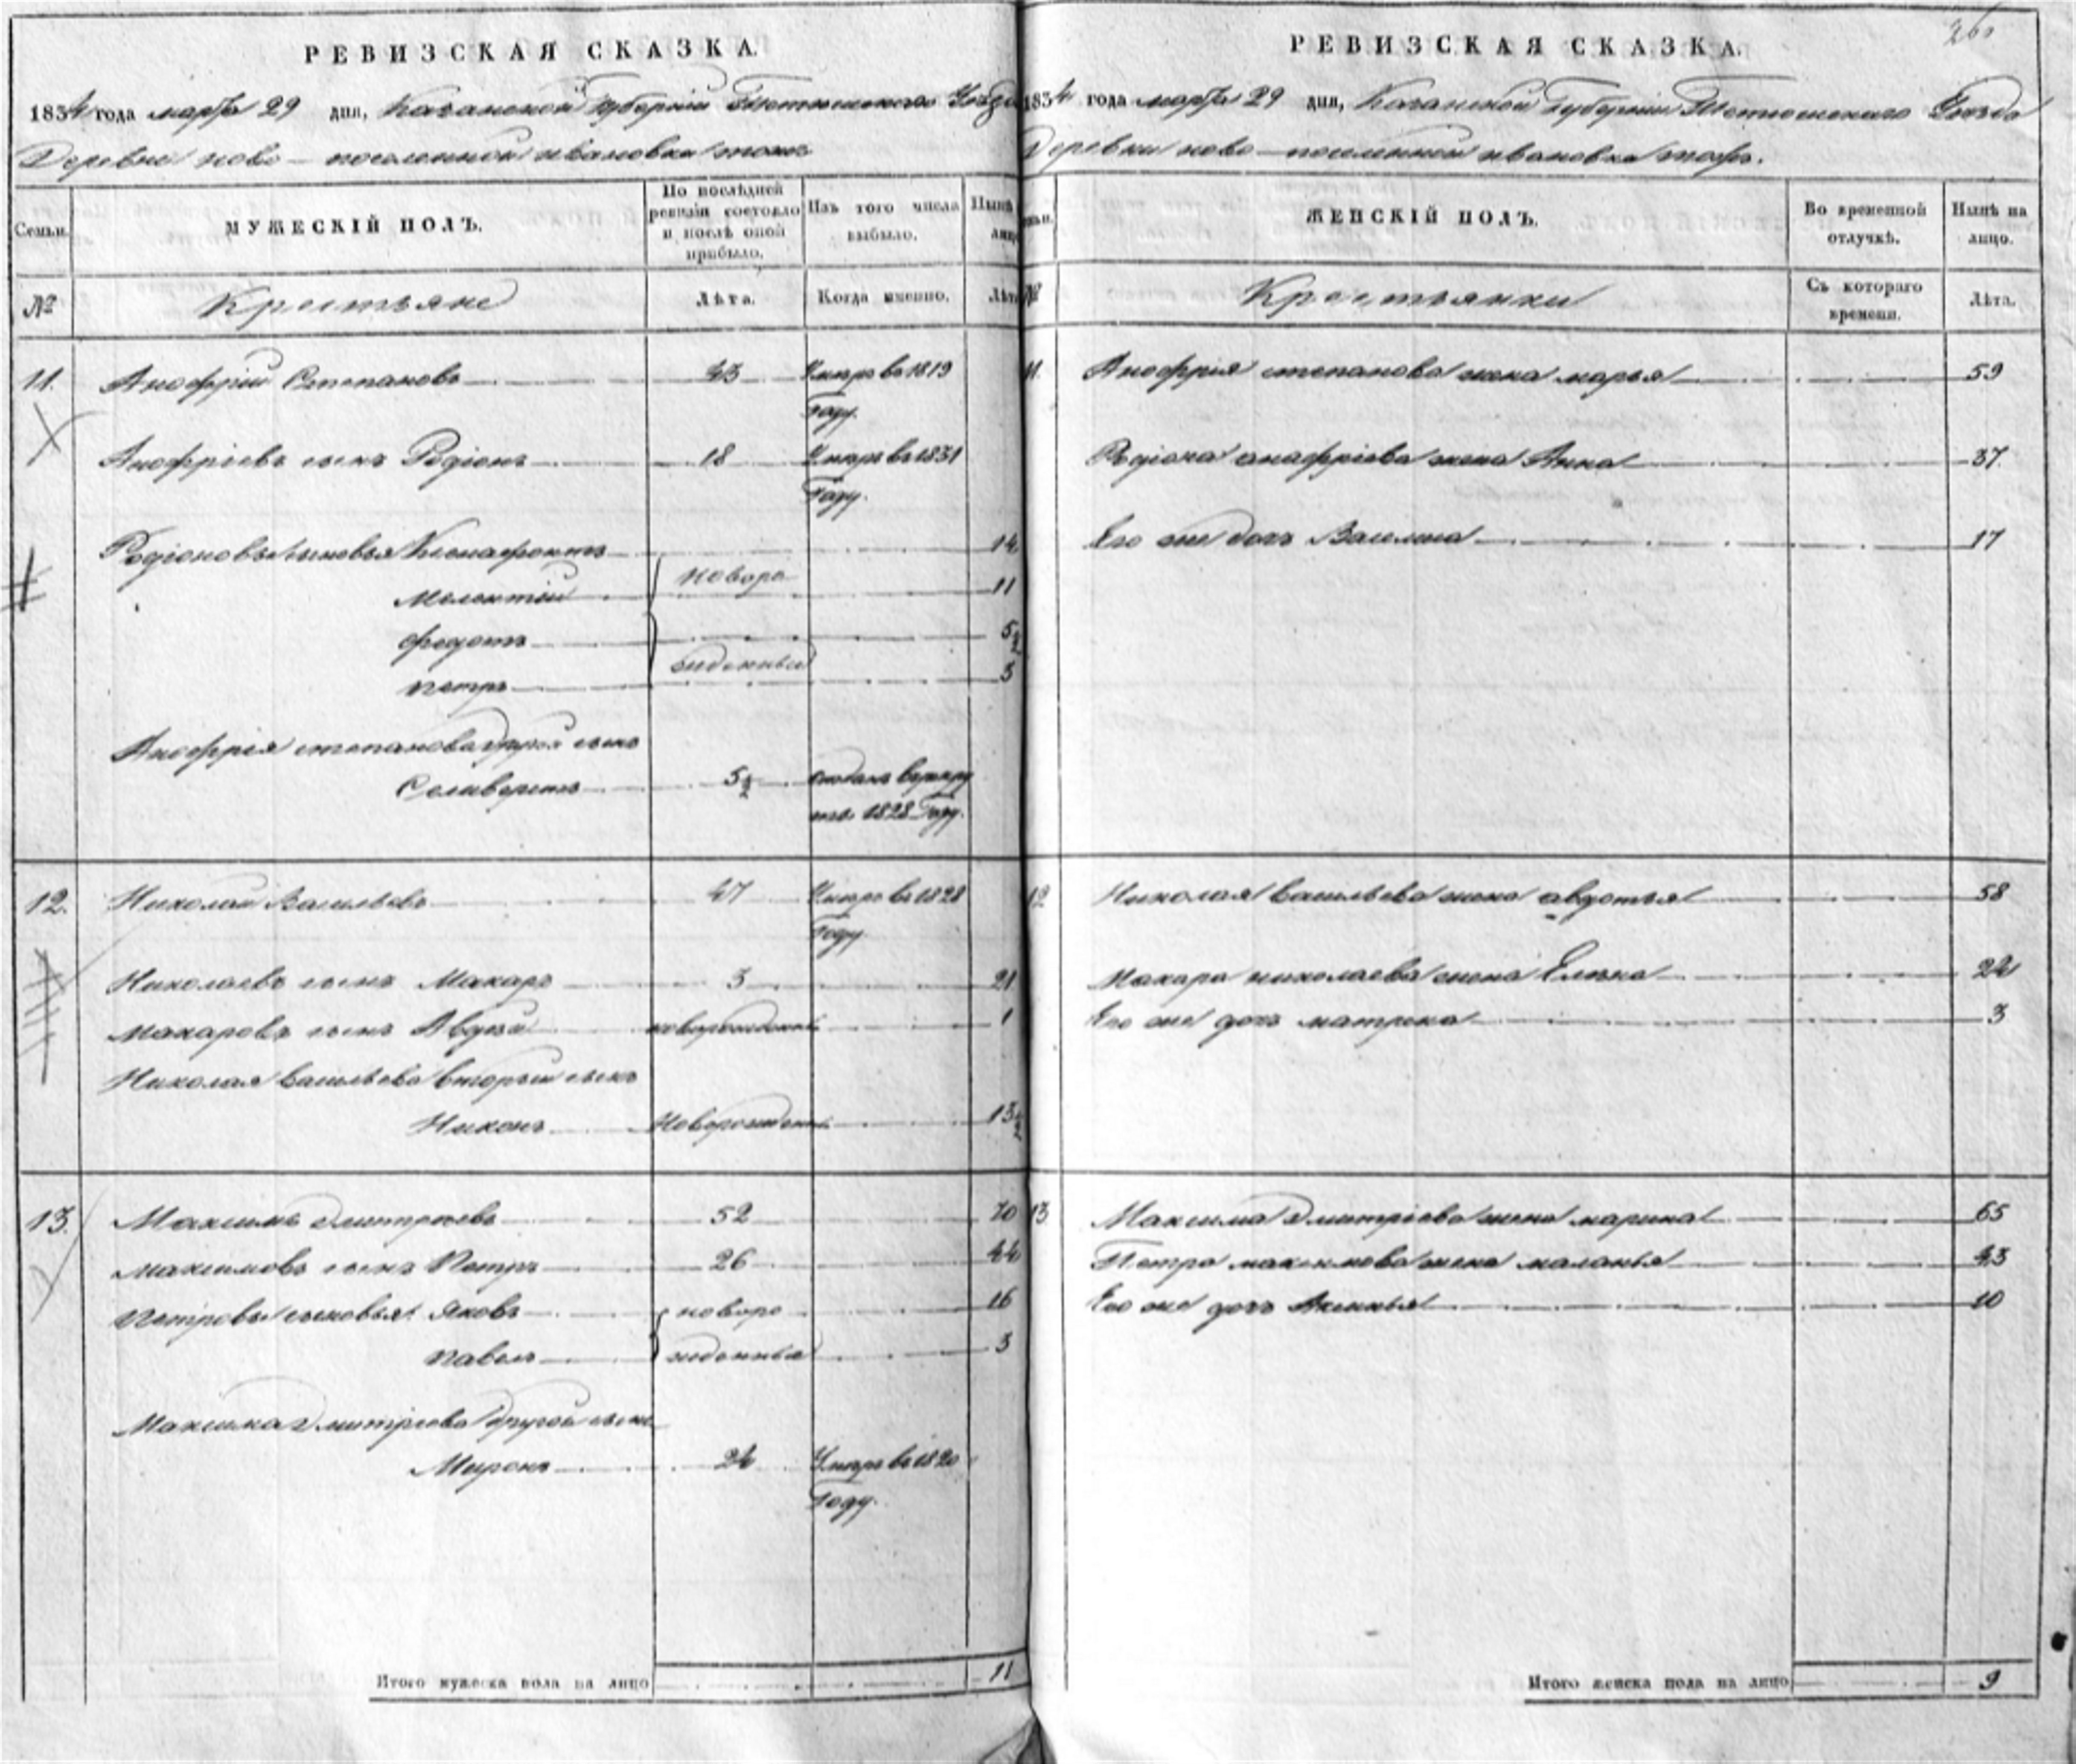 РЕВИЗСКАЯ СКАЗКА.
1834 года марта 29 дня, Казанской Губернии Тетюшскаго Уезда
Деревни ново-поселенной ивановка тожъ
Семьи.
МУЖЕСКІЙ ПОЛЪ.
По послѣдней ревизіи состояло и послѣ оной прибыло.
Изъ того числа выбыло.
Нынѣ лицо
№
Крестьяне
Лѣта.
Когда именно.
Лѣта
11. Анофрій Степановъ 43 Умеръ въ 1819
Году.
Анофріевъ сынъ Родіонъ 18 Умеръ въ 1831
Году.
Родіоновы сыновья Ксенофонтъ 14
Мелентій новоро 11
федотъ 5½
петръ жденныи 3
Анофрія степанова другой сынъ
Селиверстъ 5½ отданъ врекру
ты 1828 Году.
12. Николай Васильевъ 47 Умеръ въ 1828
Году
Николаевъ сынъ Макаръ 3 21
Макаровъ сынъ Авдей новорожденный 1
Николая васильева вторый сынъ
Никонъ Новорожденны 13½
13. Максимъ дмитріевъ 52 70
максимовъ сынъ Петръ 26 44
Петровы сыновья Яковъ новоро 16
павелъ жденныя 3
Максима дмитріева другой сынъ
Миронъ 24 Умеръ въ 1820
Году.
Итого мужеска пола на лицо 11
РЕВИЗСКАЯ СКАЗКА.
1834 года марта 29 дня, Казанской Губерніи Тетюшскаго Уезда
Деревни ново-поселенной ивановка тожъ.
ЖЕНСКІЙ ПОЛЪ.
Во временной отлучкѣ.
Нынѣ на лицо.
№
Крестьянки
Съ котораго времени.
Лѣта.
11. Анофрия степанова жена марья 59
Родіона анафріева жена Анна 37
Его же дочь Василиса 17
12 Николая васильева жена авдотья 58
Макара николаева жена Елена 24
Его же дочь матрена 3
13 Максима дмитріева жена марина 65
Петра максимова жена маланья 43
Его же дочь Аксинья 10
Итого женска пола на лицо 9